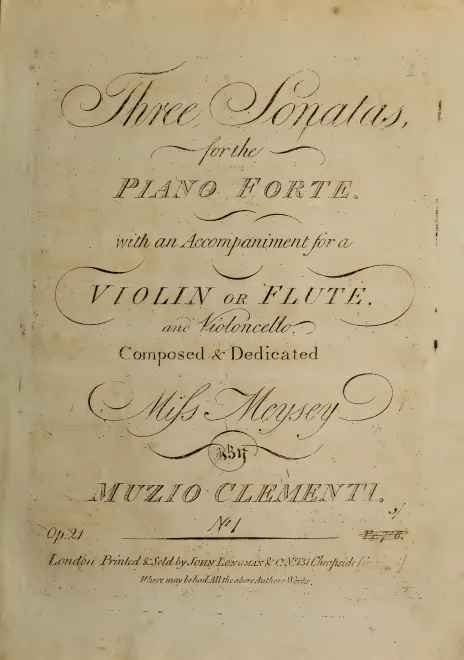 Three Sonatas,
for the
PIANO FORTE.
with an Accompaniment for a
VIOLIN OR FLUTE.
and Violoncello
Composed & Dedicated
Miſs Meysey
By
MUZIO CLEMENTI.
No 1
Op: 21
London Printed & Sold by JOHN LONGMAN & Co. No. 131 Cheapside
Where may be had All the above Authors Works.